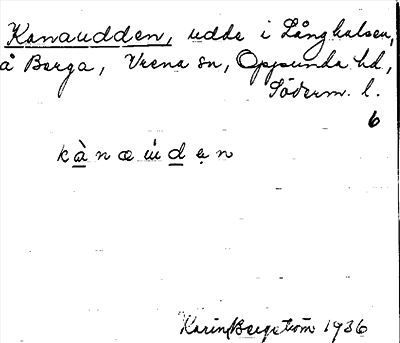 Kanaudden, udde i Långhalsen,
å Berga, Vrena sn, Oppunda hd,
Söderm. l.
6
kànæúden
Karin Bergström 1936